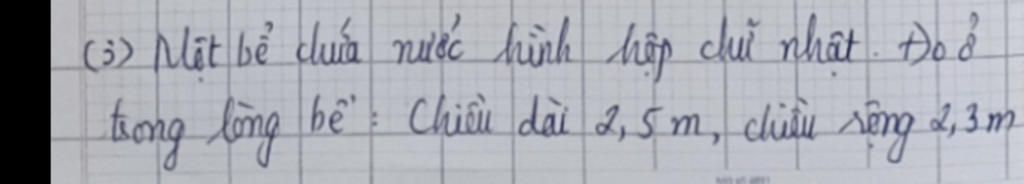 (3) Một bể chứa nước hình hộp chữ nhật. Đo ở
trong lòng bể: Chiều dài 2,5 m, chiều rộng 2,3 m